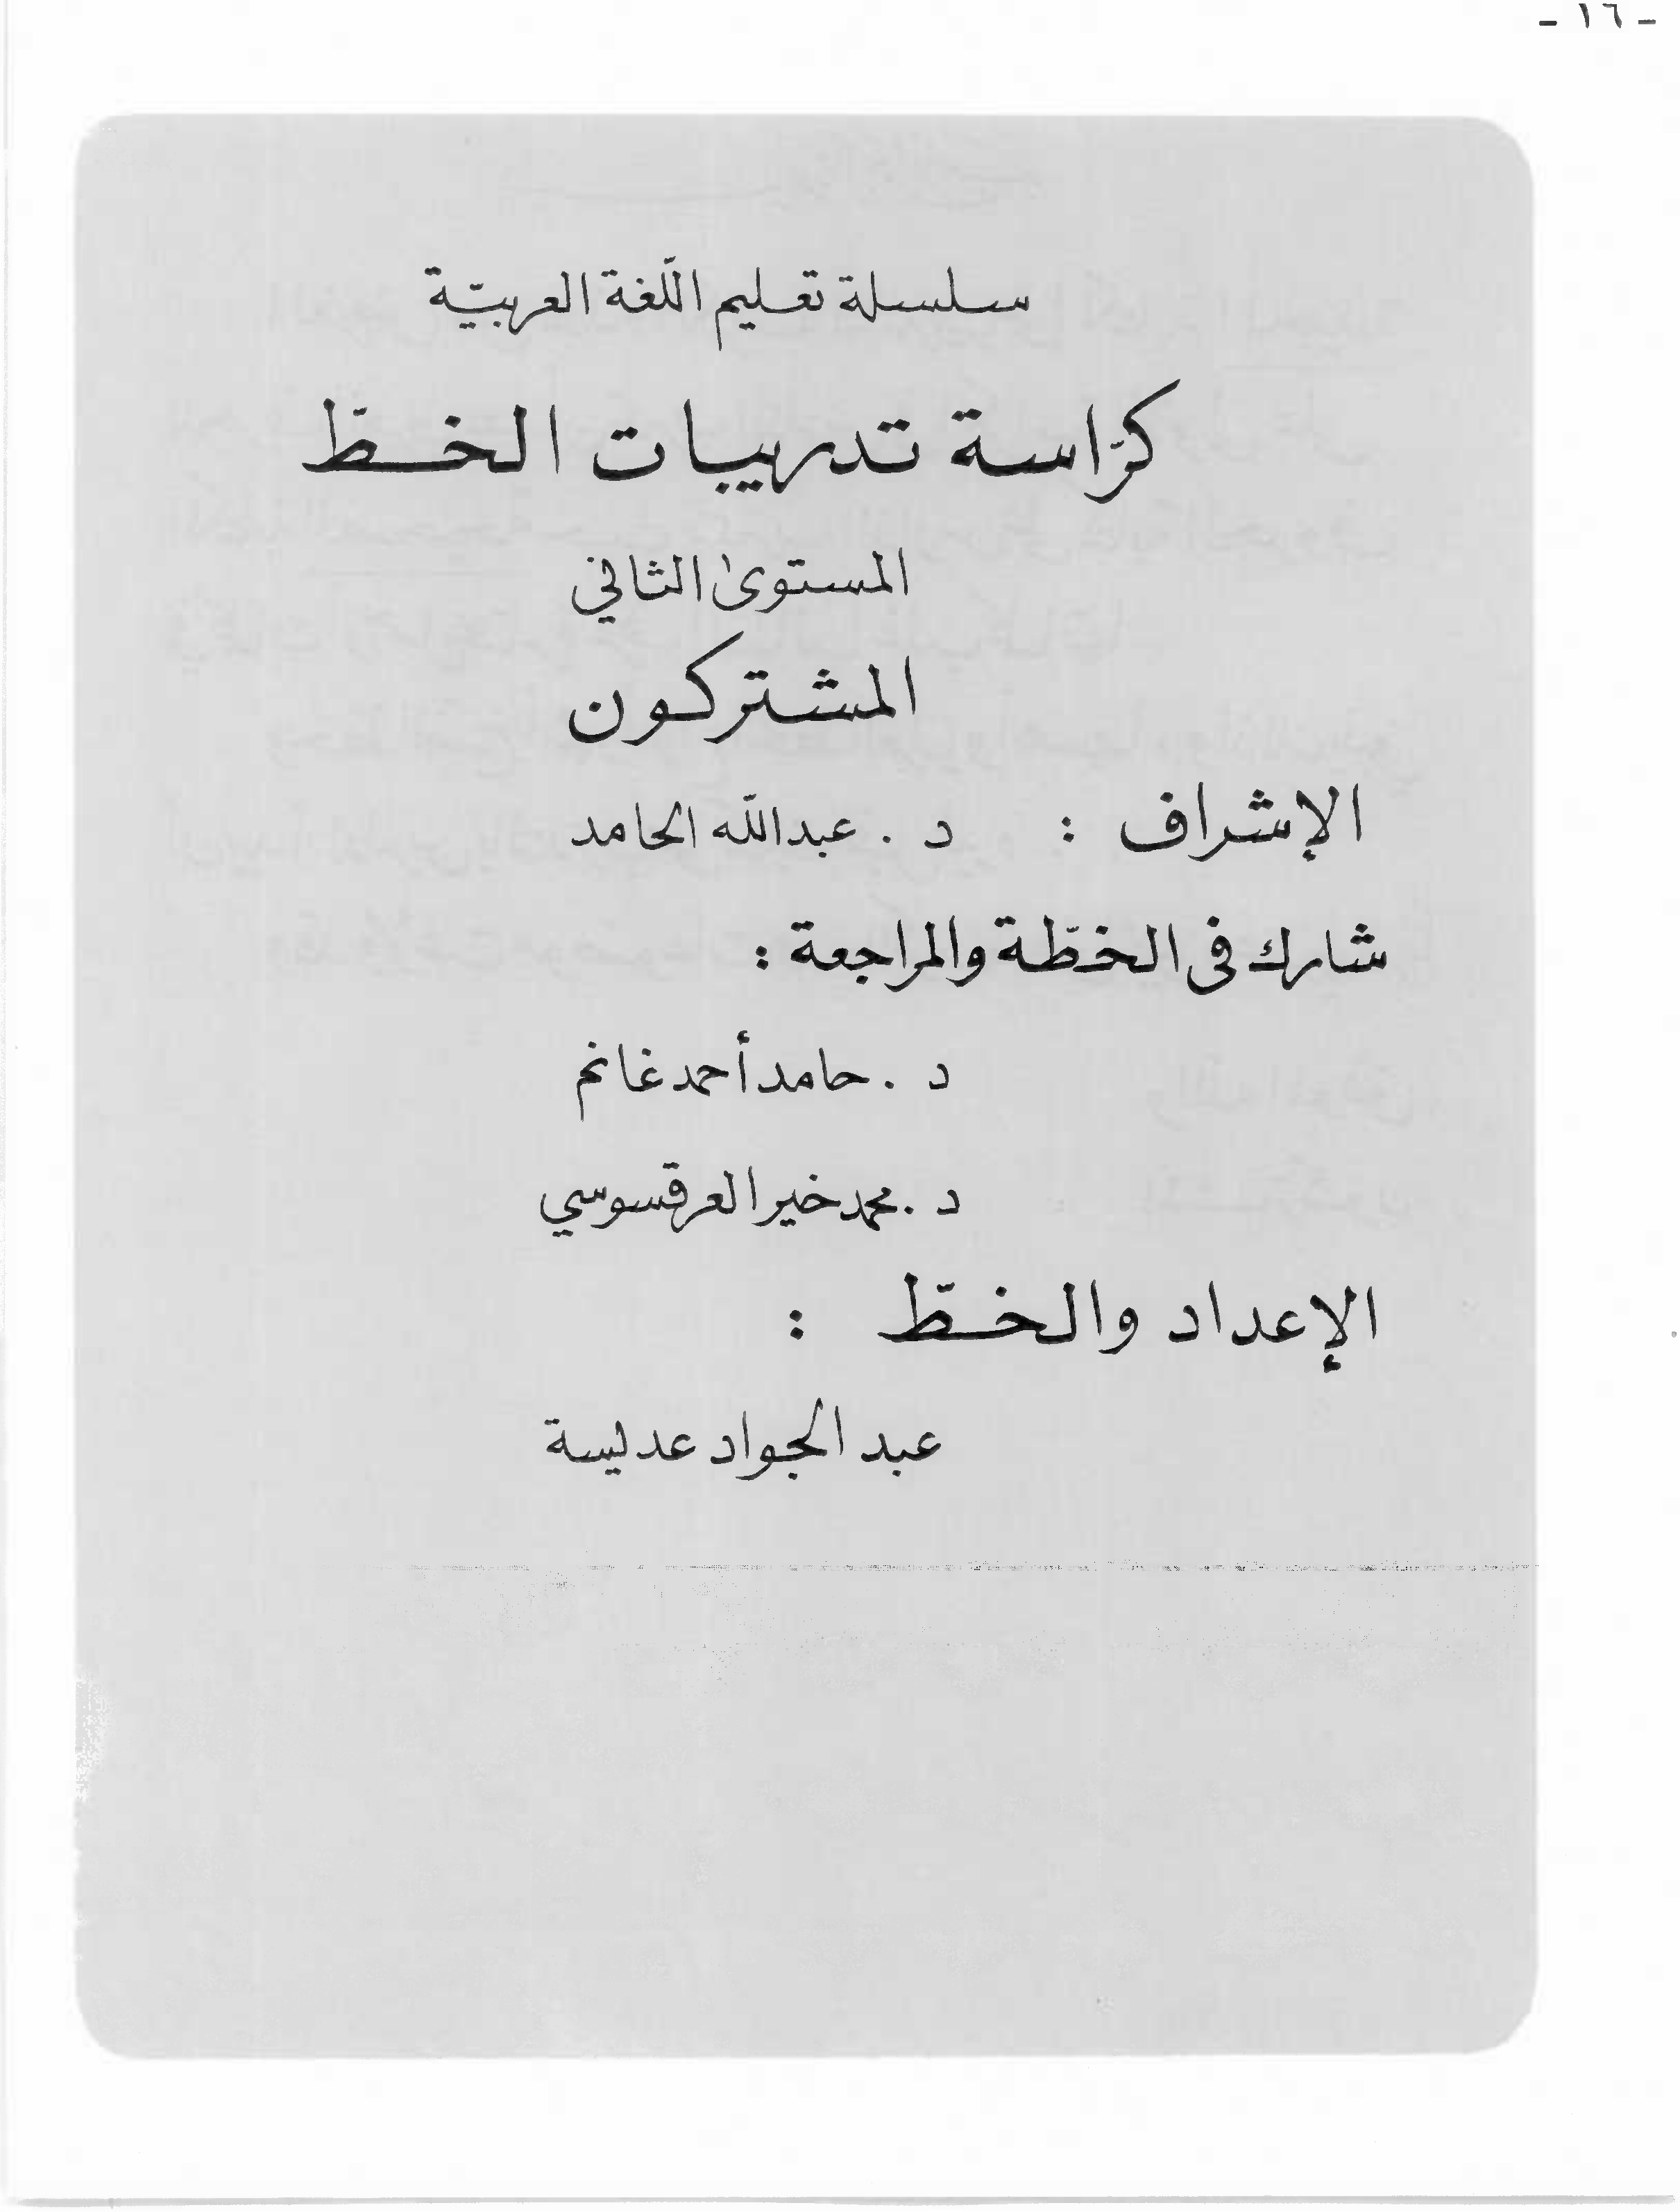 - ١٦ -
سلسلة تعليم اللّغة العربيّة
كرّاسة تدريبات الخطّ
المستوىٰ الثاني
المشتركون
الإشراف : د . عبدالله الحامد
شارك فى الخطّة والمراجعة :
د . حامد أحمد غانم
د . محمد خير العرقسوسي
الإعداد والخطّ :
عبد الجواد عديسة